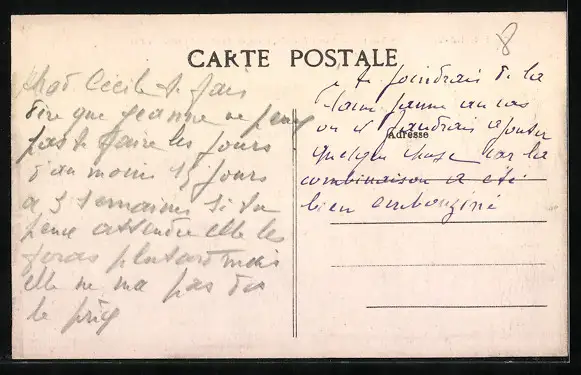 8
CARTE POSTALE
Mad Cécile te fais
dire que jeanne ne peux
pas te faire les jours
d au moins 15 jours
a 3 semaines si tu
peux attendre elle les
feras plutard mais
elle ne ma pas dis
le prix
je te joindrais de la
laine jaune au cas
ou il faudrais ajouter
Adresse
quelque chose car la
combinaison a été
bien